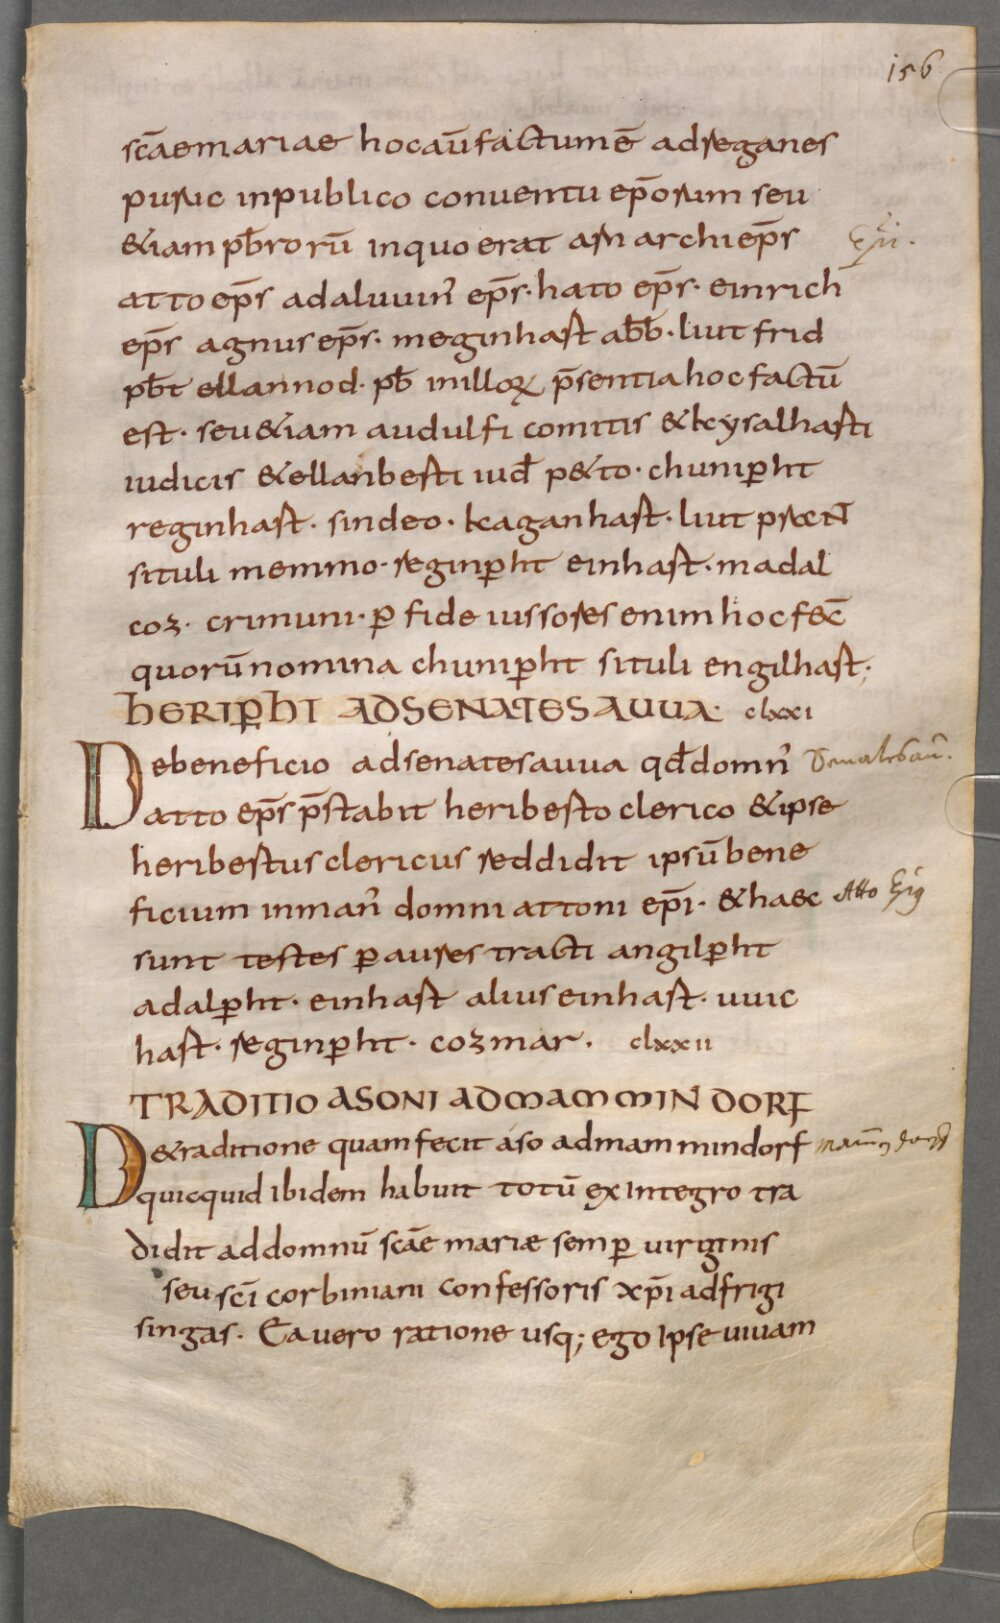 156
scāe mariae hoc aū factum ē ad reganes
puruc in publico conuentu ep̄orum seu
&iam pb̄rorū in quo erat arn archiep̄s
atto ep̄s adaluuin̄ ep̄s· hato ep̄s· einrich
ep̄s agnus ep̄s· meginhart abb̄· liutfrid
pb̄t ellannod· pb̄ in illoꝝ p̄sentia hoc factū
est· seu &iam audulfi comitis & kysalharti
iudicis & ellanberti iud̄ p&to· chunip̄ht
reginhart· sindeo· kaganhart· liut
situli memmo· reginp̄ht einhart· madal
coz· crimuni· p̄ fideiussores enim hoc fec̄
quorū nomina chunip̄ht situli engilhart;
HERIP̄HT AD SENATES AUUA· clxxi
De beneficio ad senatesauua qd̄ domn̄
atto ep̄s p̄stabit heriberto clerico & ipse
heribertus clericus reddidit ipsū bene
ficium in man̄ domni attoni ep̄i· & haec Atto
sunt testes p̄ aures tracti angilp̄ht
adalp̄ht· einhart alius einhart· uuic
hart· reginp̄ht· cozmar· clxxii
TRADITIO ASONI AD MAMMINDORF
De traditione quam fecit aso ad mammindorf
quicquid ibidem habuit totū ex integro tra
didit ad domnū scāe mariæ semp̄ uirginis
seu sc̄i corbiniani confessoris xp̄i ad frigi
singas· Ea uero ratione usq; ego ipse uiuam